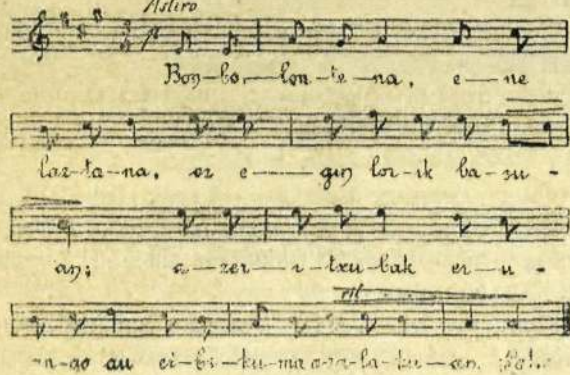 Astiro
Bon-bo-lon-te-na, e-ne
laz-ta-na, ez e-gin lor-ik ba-su-
an; a-zer-i-txu-bak er-u-
-n-go au ei-bi-ku-ma